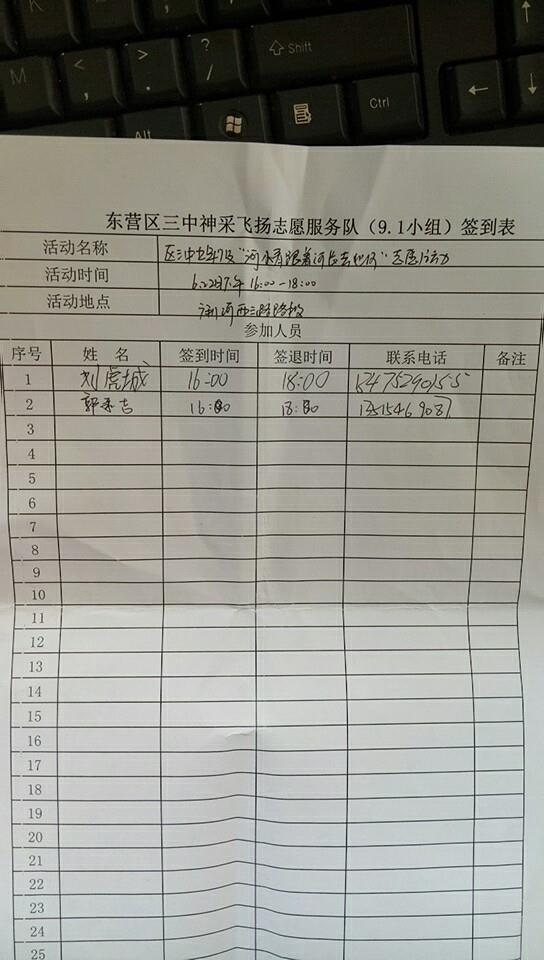 M < , > . ? / Shift
Alt Ctrl
东营区三中神采飞扬志愿服务队（9.1小组）签到表
活动名称 区三中七年级"河水清跟着河长去巡河"志愿活动
活动时间 16:00-18:00
活动地点
参加人员
序号 姓 名 签到时间 签退时间 联系电话 备注
1 刘虎城 16:00 18:00 15475290155
2 郭 吉 16:00 18:00 13515469087
3
4
5
6
7
8
9
10
11
12
13
14
15
16
17
18
19
20
21
22
23
24
25